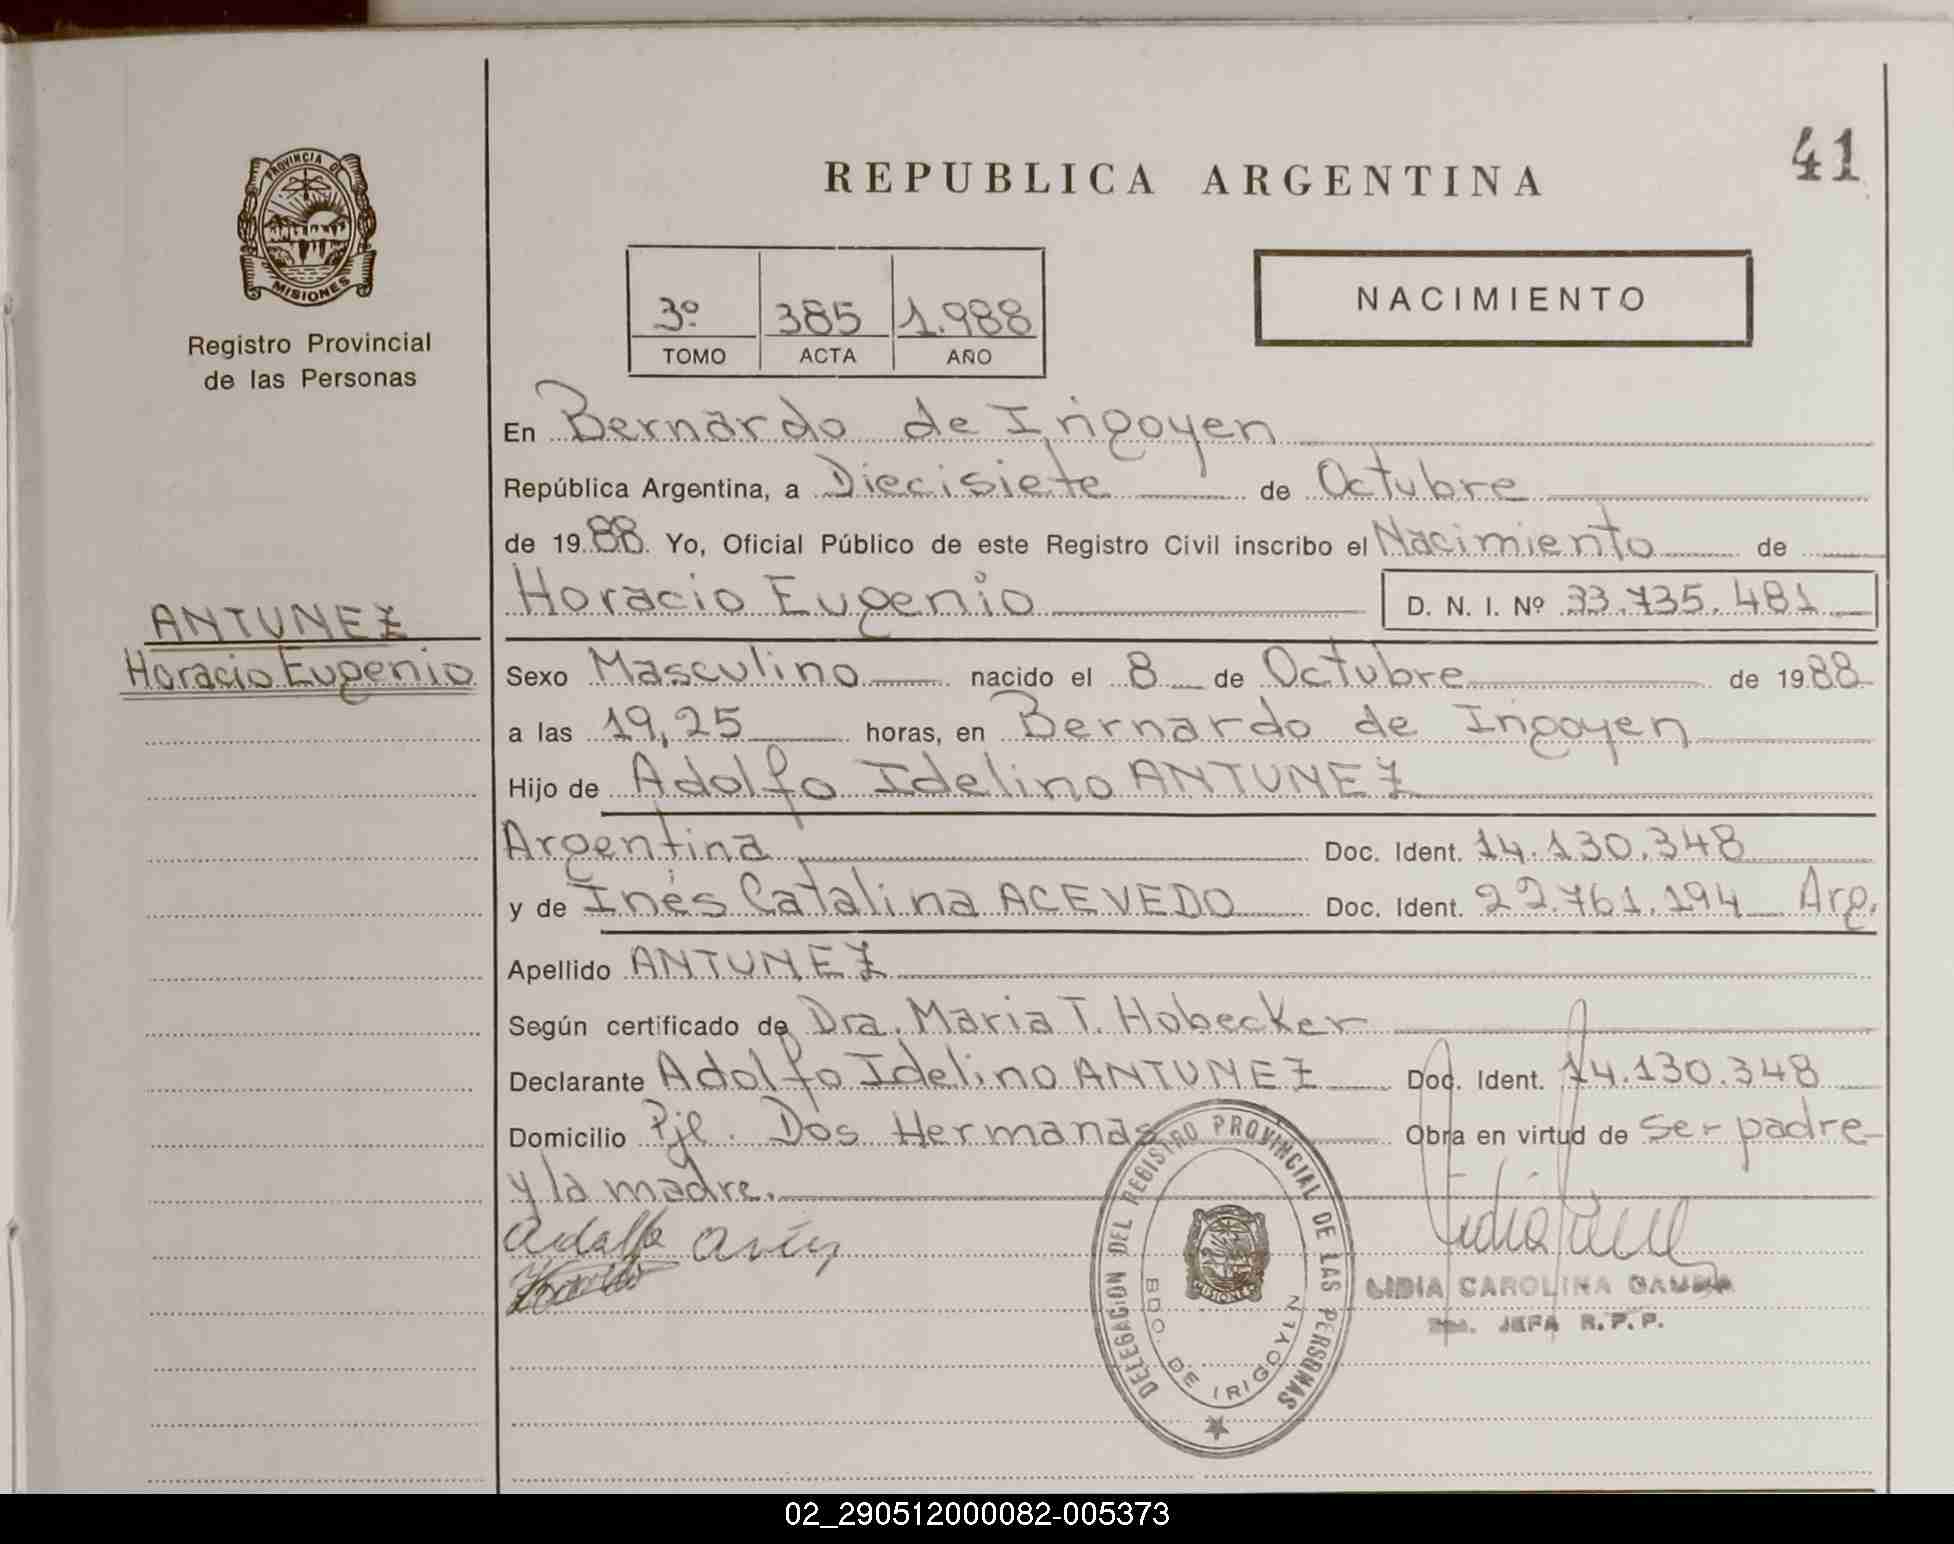 41
REPUBLICA ARGENTINA
PROVINCIA DE
MISIONES
Registro Provincial
de las Personas
3º 385 1.988
TOMO ACTA AÑO
NACIMIENTO
En Bernardo de Irigoyen
República Argentina, a Diecisiete de Octubre
de 1988. Yo, Oficial Público de este Registro Civil inscribo el Nacimiento de
Horacio Eugenio D. N. I. Nº 33.735.481
ANTUNEZ
Horacio Eugenio
Sexo Masculino nacido el 8 de Octubre de 1988
a las 19,25 horas, en Bernardo de Irigoyen
Hijo de Adolfo Idelino ANTUNEZ
Argentina Doc. Ident. 14.130.348
y de Inés Catalina ACEVEDO Doc. Ident. 22.761.194 Arg.
Apellido ANTUNEZ
Según certificado de Dra. Maria T. Hobecker
Declarante Adolfo Idelino ANTUNEZ Doc. Ident. 14.130.348
Domicilio Pje. Dos Hermanas Obra en virtud de ser padre
y la madre.
Adolfo
DELEGACION DEL REGISTRO PROVINCIAL DE LAS PERSONAS
BDO. DE IRIGOYEN
MISIONES
LIDIA CAROLINA
JEFA R.P.P.
02_290512000082-005373